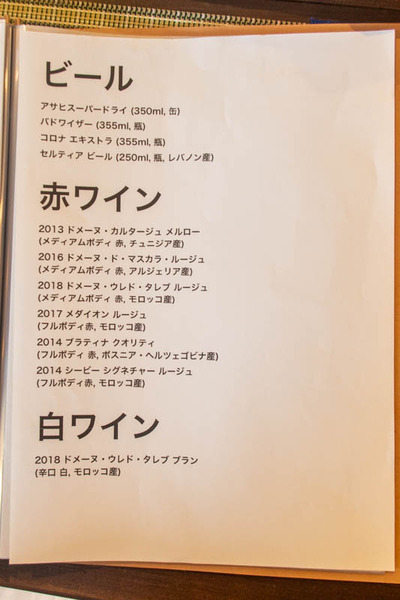 ビール
アサヒスーパードライ (350ml, 缶)
バドワイザー (355ml, 瓶)
コロナ エキストラ (355ml, 瓶)
セルティア ビール (250ml, 瓶, レバノン産)
赤ワイン
2013 ドメーヌ・カルタージュ メルロー
(メディアムボディ 赤, チュニジア産)
2016 ドメーヌ・ド・マスカラ・ルージュ
(メディアムボディ 赤, アルジェリア産)
2018 ドメーヌ・ウレド・タレブ ルージュ
(メディアムボディ 赤, モロッコ産)
2017 メダイオン ルージュ
(フルボディ赤, モロッコ産)
2014 プラティナ クオリティ
(フルボディ 赤, ボスニア・ヘルツェゴビナ産)
2014 シービー シグネチャー ルージュ
(フルボディ赤, モロッコ産)
白ワイン
2018 ドメーヌ・ウレド・タレブ ブラン
(辛口 白, モロッコ産)